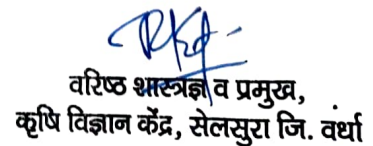 वरिष्ठ शास्त्रज्ञ व प्रमुख,
कृषि विज्ञान केंद्र, सेलसुरा जि. वर्धा